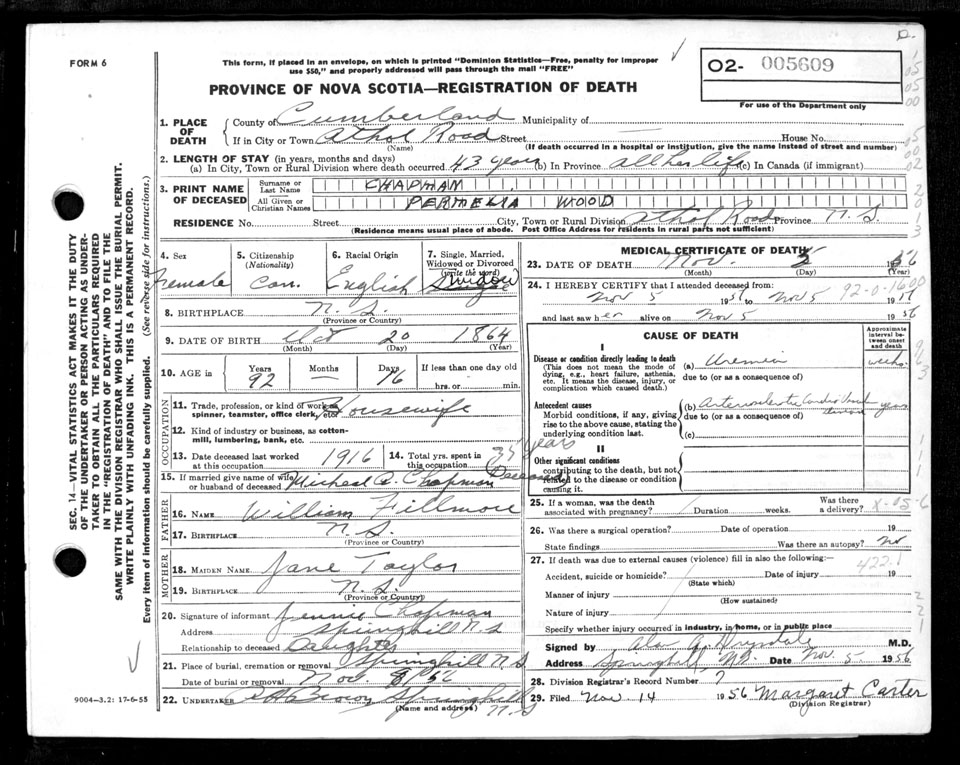 FORM 6
This form, if placed in an envelope, on which is printed "Dominion Statistics—Free, penalty for improper
use $50," and properly addressed will pass through the mail "FREE"
O2- 005609
For use of the Department only
PROVINCE OF NOVA SCOTIA—REGISTRATION OF DEATH
SEC. 14—VITAL STATISTICS ACT MAKES IT THE DUTY
OF THE UNDERTAKER OR PERSON ACTING AS UNDER-
TAKER TO OBTAIN ALL THE PARTICULARS REQUIRED
IN THE "REGISTRATION OF DEATH" AND TO FILE THE
SAME WITH THE DIVISION REGISTRAR WHO SHALL ISSUE THE BURIAL PERMIT.
WRITE PLAINLY WITH UNFADING INK. THIS IS A PERMANENT RECORD.
Every item of information should be carefully supplied. (See reverse side for instructions.)
1. PLACE OF DEATH County of Cumberland Municipality of —
If in City or Town Athol Road Street House No.
(Name) (If death occurred in a hospital or institution, give the name instead of street and number)
2. LENGTH OF STAY (in years, months and days)
(a) In City, Town or Rural Division where death occurred 43 years (b) In Province all her life (c) In Canada (if immigrant)
3. PRINT NAME OF DECEASED Surname or Last Name CHAPMAN
All Given or Christian Names PERMELIA WOOD
RESIDENCE No. Street City, Town or Rural Division Athol Road Province N.S.
(Residence means usual place of abode. Post Office Address for residents in rural parts not sufficient)
4. Sex Female
5. Citizenship (Nationality) Can.
6. Racial Origin English
7. Single, Married, Widowed or Divorced (write the word) Widow
8. BIRTHPLACE N.S.
(Province or Country)
9. DATE OF BIRTH Oct 20 1864
(Month) (Day) (Year)
10. AGE in Years 92 Months — Days 16 If less than one day old
hrs. or min.
OCCUPATION
11. Trade, profession, or kind of work as spinner, teamster, office clerk, etc. Housewife
12. Kind of industry or business, as cotton-mill, lumbering, bank, etc.
13. Date deceased last worked at this occupation 1916
14. Total yrs. spent in this occupation 35 years
15. If married give name of wife or husband of deceased Micheal B. Chapman Deceased
FATHER
16. NAME William Fillmore
17. BIRTHPLACE N.S.
(Province or Country)
MOTHER
18. MAIDEN NAME Jane Taylor
19. BIRTHPLACE N.S.
(Province or Country)
20. Signature of informant Jennie Chapman
Address Springhill N.S
Relationship to deceased Daughter
21. Place of burial, cremation or removal Springhill N.S.
Date of burial or removal Nov. 56
22. UNDERTAKER Brown Springhill N.S
(Name and address)
9004—3.2: 17-6-55
MEDICAL CERTIFICATE OF DEATH
23. DATE OF DEATH Nov. 5 1956
(Month) (Day) (Year)
24. I HEREBY CERTIFY that I attended deceased from:
Nov 5 1956 to Nov 5 1956
92-0-1600
and last saw her alive on Nov 5 1956
CAUSE OF DEATH
Approximate interval between onset and death
I
Disease or condition directly leading to death
(This does not mean the mode of dying, e.g., heart failure, asthenia, etc. It means the disease, injury, or complication which caused death.)
(a) Uremia weeks
due to (or as a consequence of)
Antecedent causes
Morbid conditions, if any, giving rise to the above cause, stating the underlying condition last.
(b) years
due to (or as a consequence of)
(c)
II
Other significant conditions
contributing to the death, but not related to the disease or condition causing it.
25. If a woman, was the death associated with pregnancy? Duration weeks. Was there a delivery?
26. Was there a surgical operation? Date of operation 19
State findings Was there an autopsy? no
27. If death was due to external causes (violence) fill in also the following:— 422.1
Accident, suicide or homicide? Date of injury 19
(State which)
Manner of injury
(How sustained)
Nature of injury
Specify whether injury occurred in industry, in home, or in public place
Signed by M.D.
Address Springhill N.S. Date Nov. 5 1956
28. Division Registrar's Record Number 7
29. Filed Nov. 14 1956 Margaret Carter
(Division Registrar)